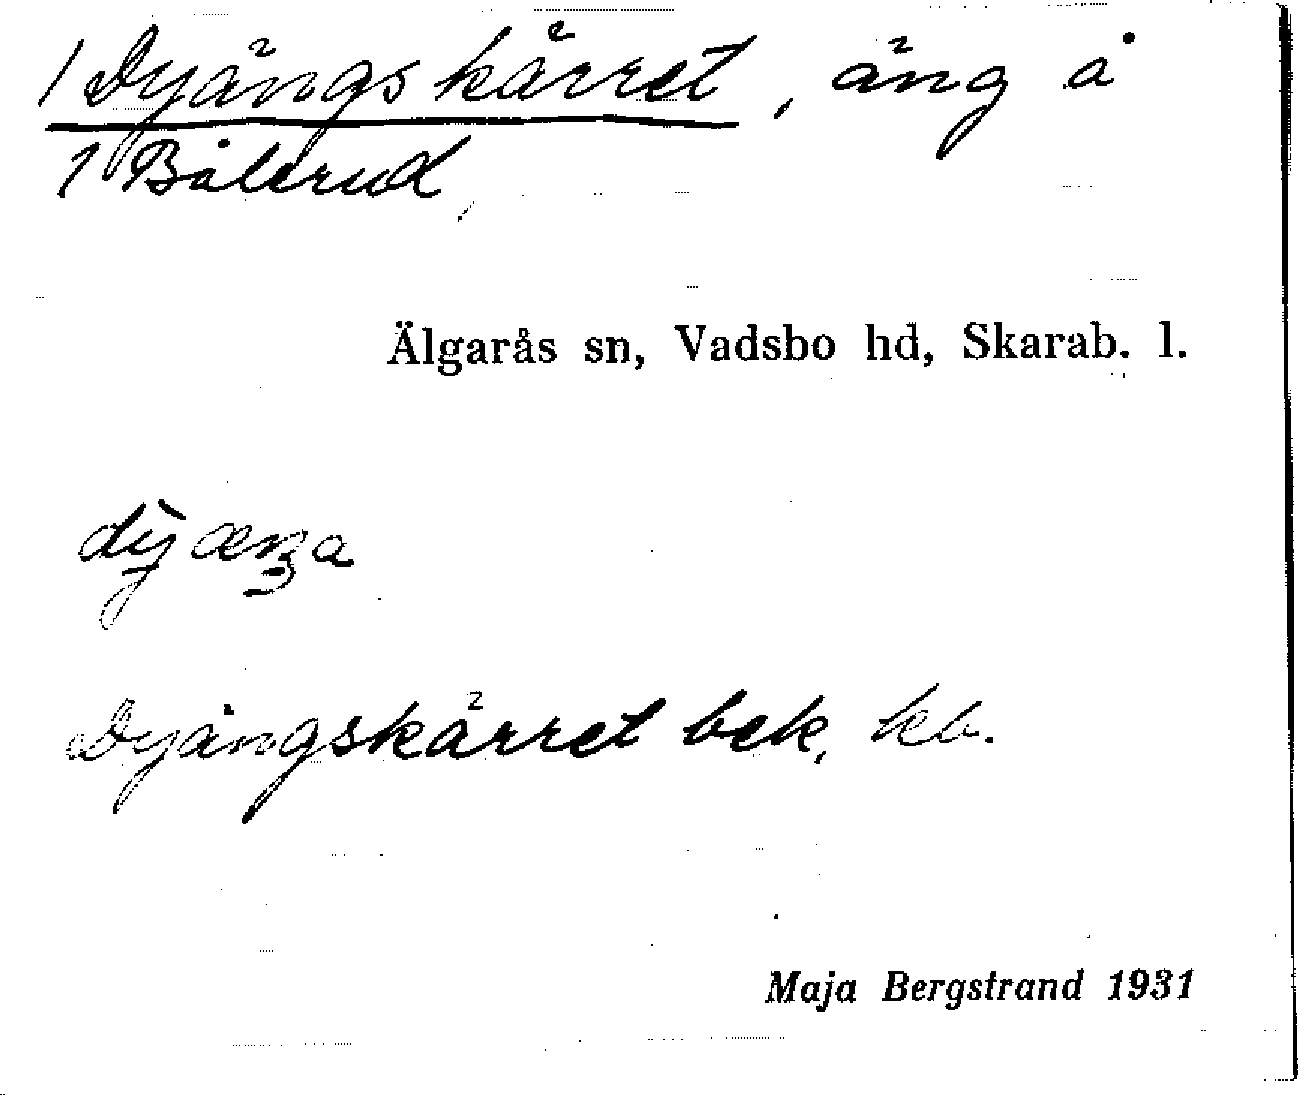 1 Dyängskärret, äng å
1 Bålerud,
Älgarås sn, Vadsbo hd, Skarab. l.
Dyängskärret bek. kb.
Maja Bergstrand 1931